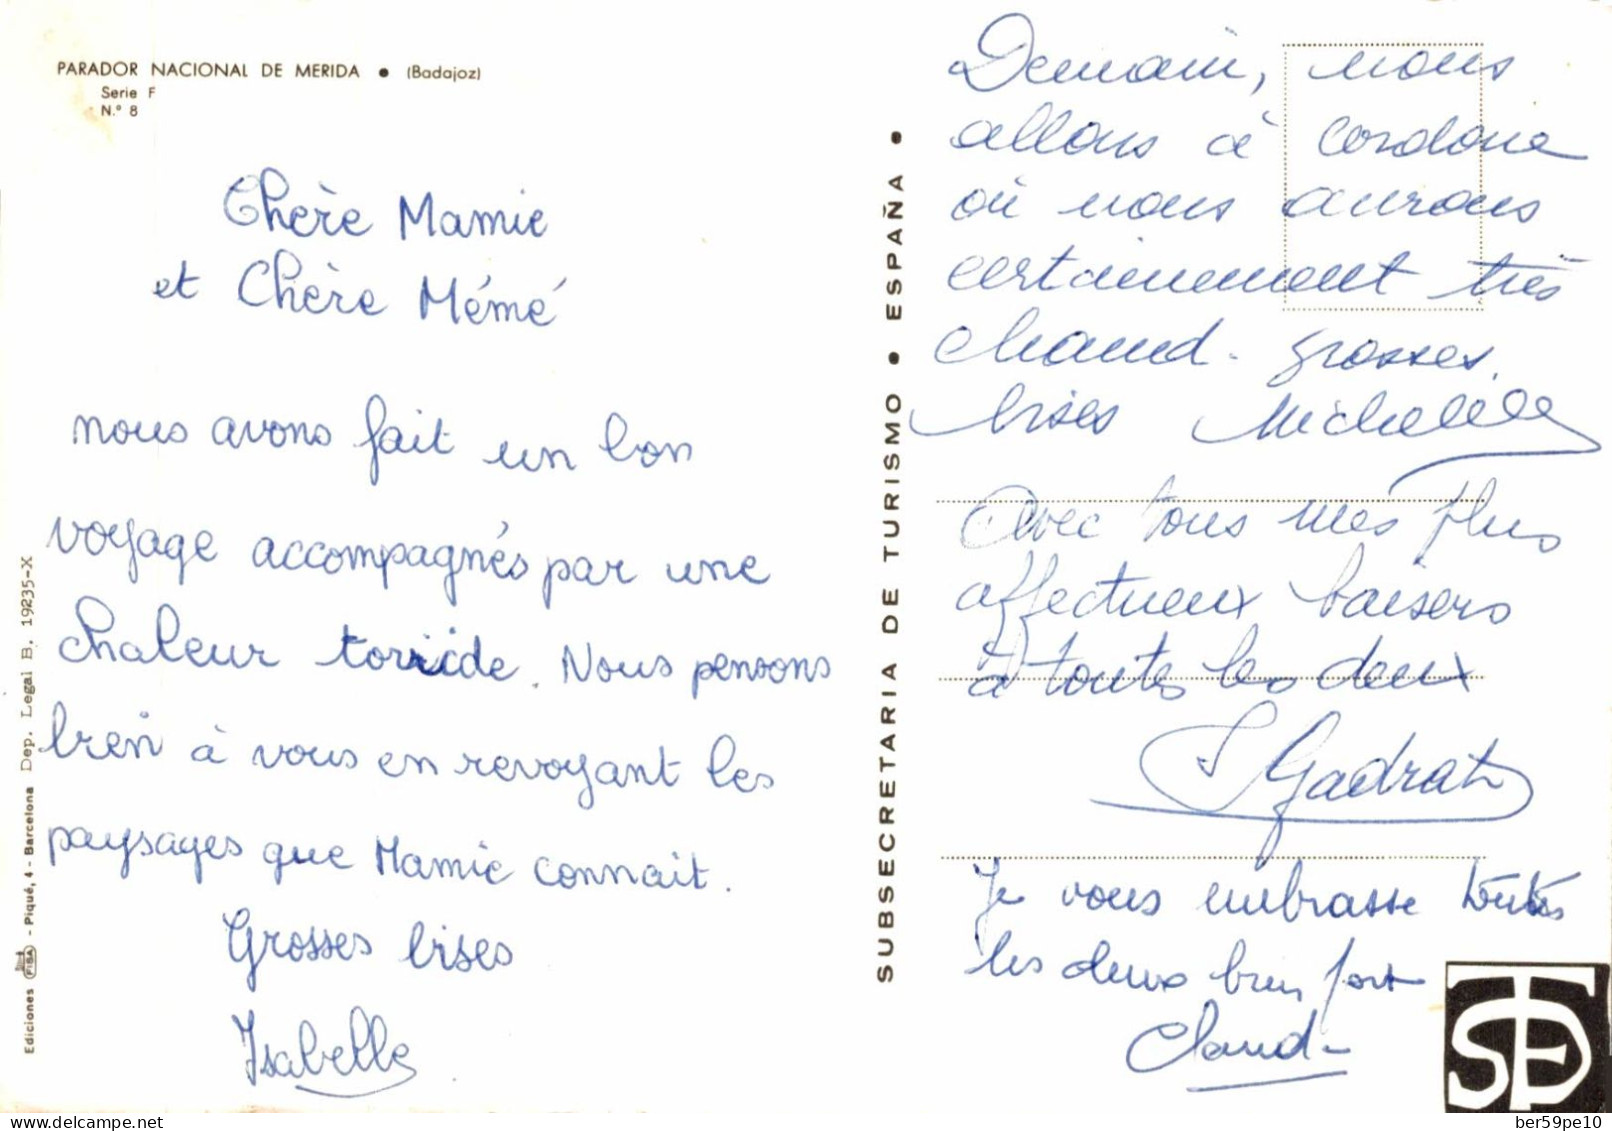 PARADOR NACIONAL DE MERIDA • (Badajoz)
Serie F
N.º 8
Chère Mamie
et Chère Mémé
nous avons fait un bon
voyage accompagnés par une
chaleur torride. Nous pensons
bien à vous en revoyant les
paysages que Mamie connait.
Grosses bises
Isabelle
Ediciones FISA - Piqué, 4 - Barcelona Dep. Legal B. 19235-X
SUBSECRETARIA DE TURISMO • ESPAÑA •
Demain, nous
allons à Cordoue
où nous aurons
certainement très
chaud. grosses
bises Michelle
Avec tous mes plus
affectueux baisers
à toutes les deux
Gadrat
Je vous embrasse toutes
les deux bien fort
Claude
STE
delcampe.net
ber59pe10